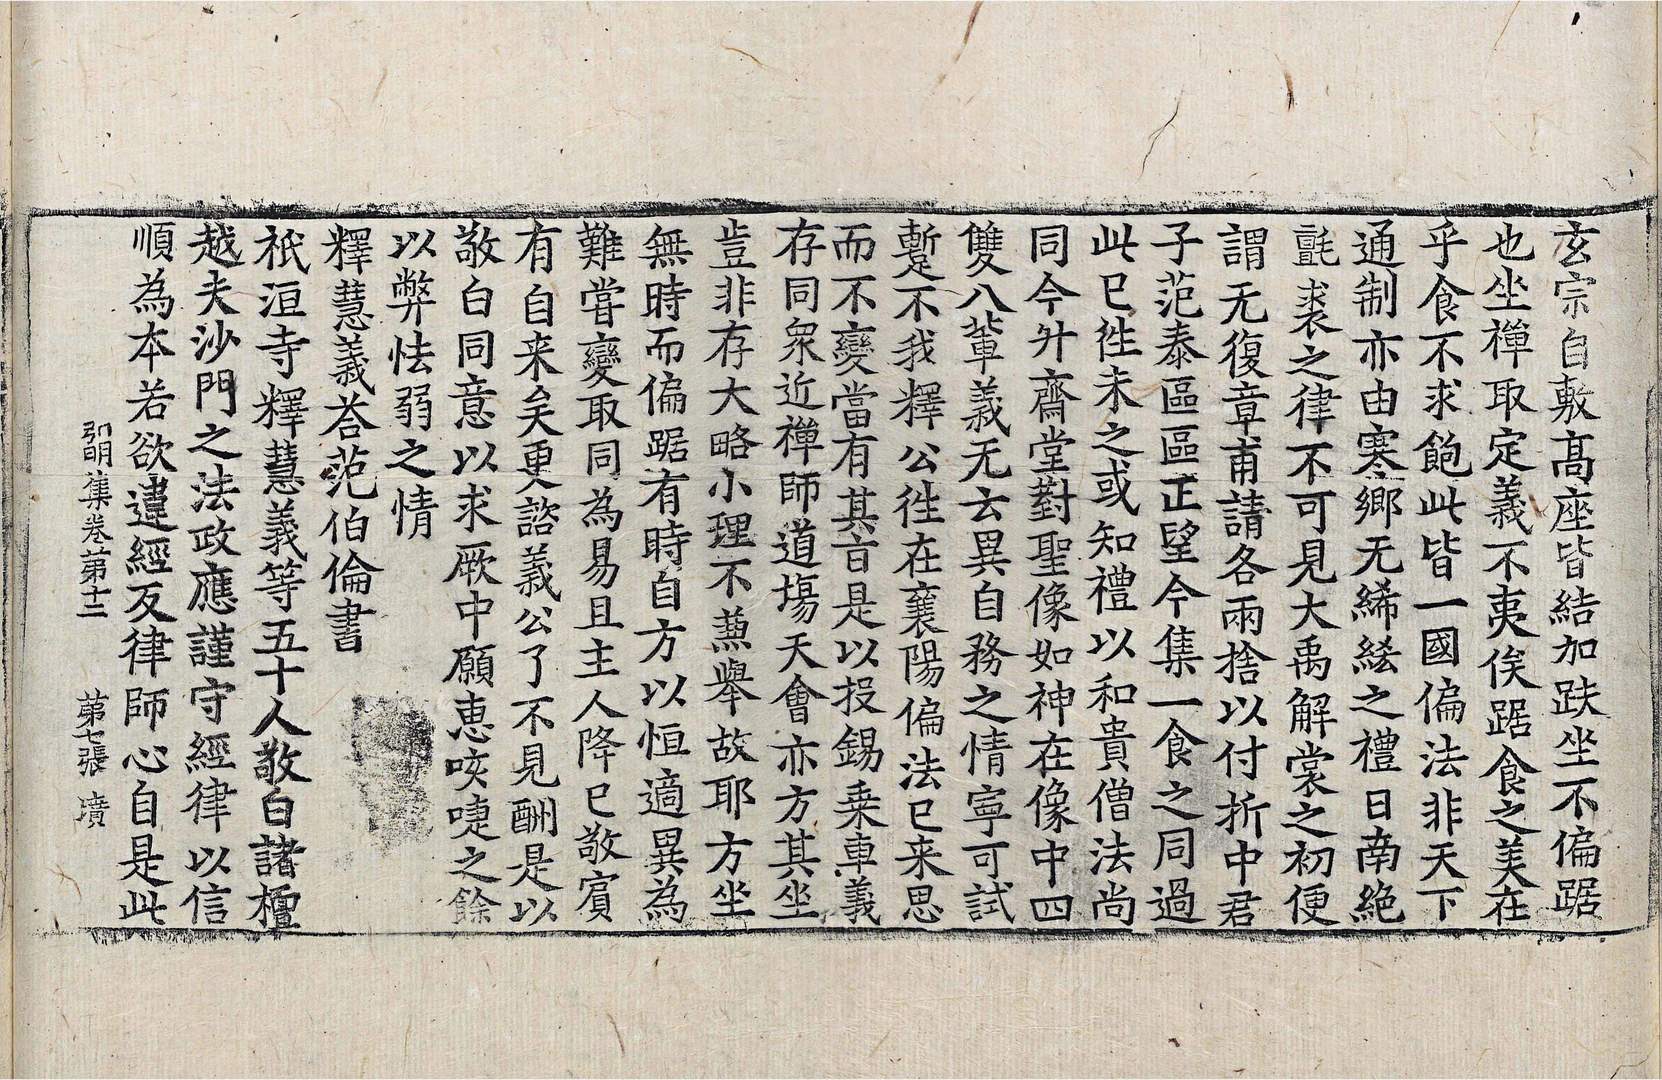 玄宗自敷高座皆結加趺坐不偏踞
也坐禪取定義不夷俟踞食之美在
乎食不求飽此皆一國偏法非天下
通制亦由寒鄉无絺綌之禮日南絶
氈裘之律不可見大禹解裳之初便
謂无復章甫請各兩捨以付折中君
子范泰區區正望今集一食之同過
此已往未之或知禮以和貴僧法尚
同今升齋堂對聖像如神在像中四
雙八輩義无云異自務之情寧可試
蹔不我釋公往在襄陽偏法已来思
而不變當有其旨是以投錫乗車義
存同衆近禪師道場天會亦方其坐
豈非存大略小理不䕃舉故耶方坐
無時而偏踞有時自方以恒適異為
難嘗變取同為易且主人降已敬賓
有自来矣更諮義公了不見酬是以
敬白同意以求厥中願恵咳𠴨之餘
以弊怯弱之情
釋慧義荅范伯倫書
祇洹寺釋慧義等五十人敬白諸檀
越夫沙門之法政應謹守經律以信
順為本若欲違經反律師心自是此
弘明集卷苐十二　苐七張　墳